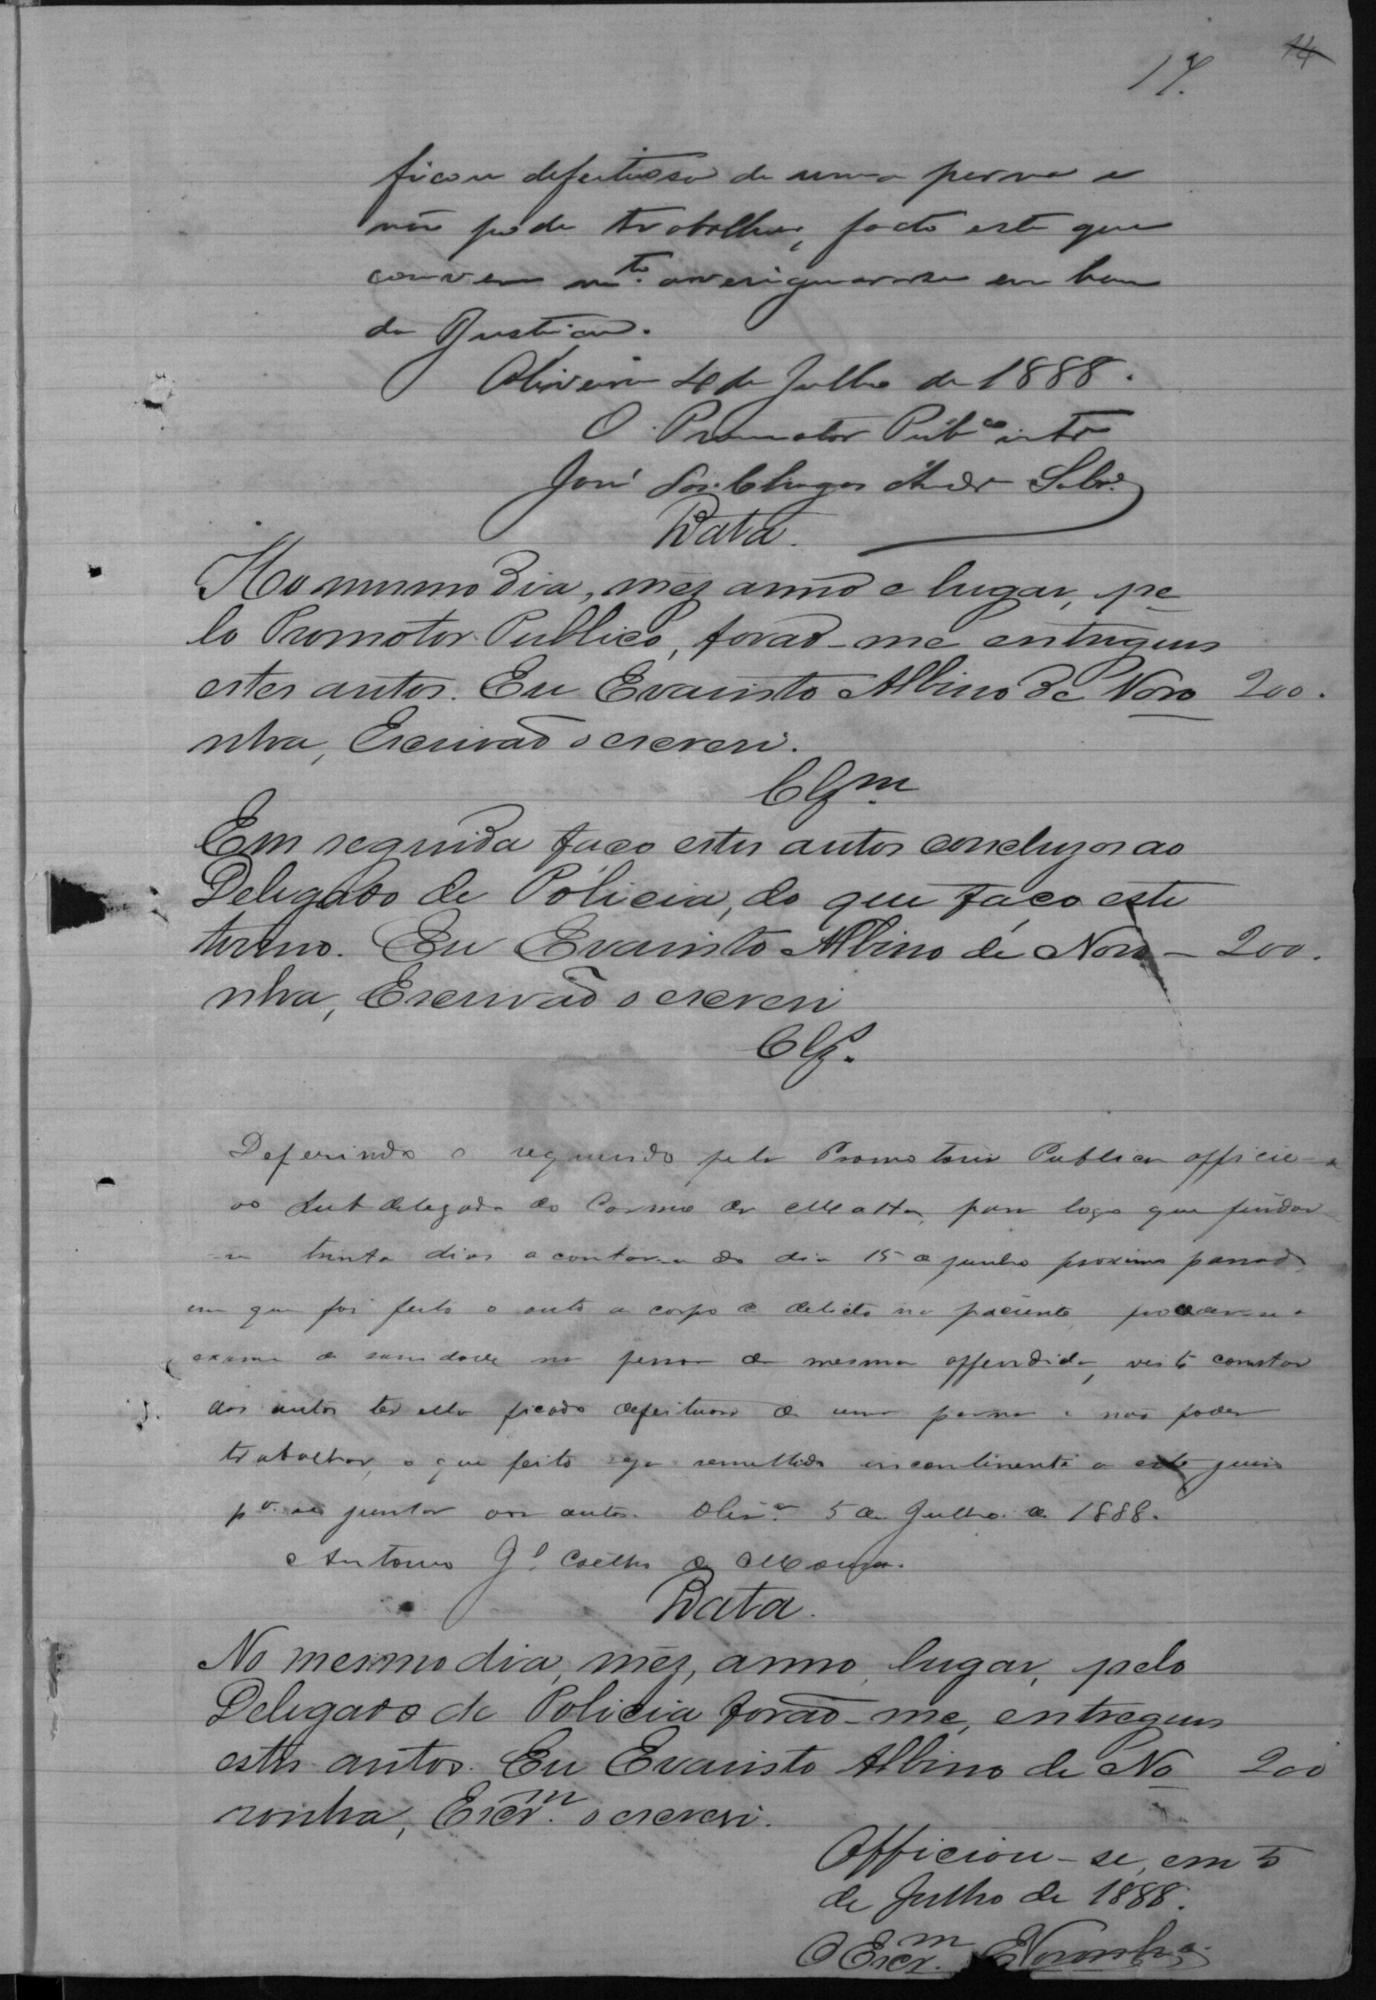 14
17.
ficou defeituosa de uma perna e
não pode trabalhar, facto este que
convem mto. averiguar-se em bem
da Justiça.
Oliveira 4 de Julho de 1888.
O Promotor Pubco. intº
José das Chagas Andr Sobrº
Data.
No mesmo dia, mêz anno e lugar, pe
lo Promotor Publico, forão-me entregues
estes autos. Eu Evaristo Albino de Noro 200.
nha, Escrivão o escrevi.
Clzm
Em seguida faço estes autos concluzos ao
Delegado de Policia, do que faço este
termo. Eu Evaristo Albino de Noro - 200.
nha, Escrivão o escrevi
Clz.
Deferindo o requerido pela Promotoria Publica officie-se
ao Subdelegado do Carmo da Matta, para logo que findar
se trinta dias a contar-se do dia 15 de junho proximo passado
em que foi feito o auto de corpo de delicto na paciente, proceder-se a
exame de sanidade na pessoa da mesma offendida, visto constar
dos autos ter ella ficado defeituosa de uma perna e não poder
trabalhar, o que feito seja remettido incontinenti a este juizo
pª. se juntar aos autos. Olivª. 5 de Julho de 1888.
Antonio Jº. Coelho de Moura.
Data.
No mesmo dia, mêz, anno, lugar, pelo
Delegado de Policia forão-me, entregues
estes autos. Eu Evaristo Albino de No 200
ronha, Escrm. o escrevi.
Officiou-se, em 5
de Julho de 1888.
O Escrm. Noronha